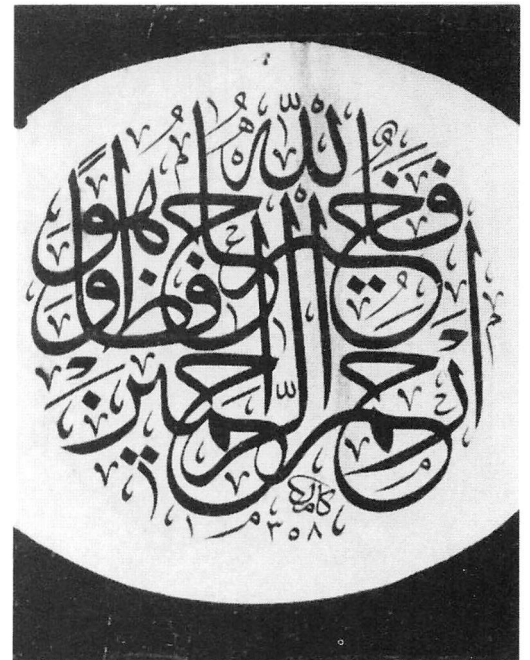 فالله خير حافظا وهو
أرحم الراحمين
كامل
١٣٥٨